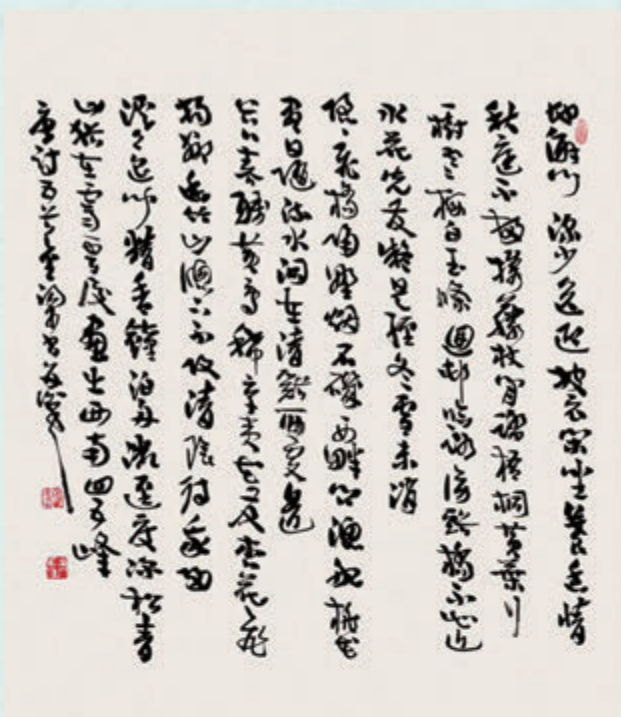 地僻门深少送迎披衣闲坐养幽情
秋庭不扫携藤杖闲踏梧桐黄叶行
一树寒梅白玉条迥邨临路傍谿桥不知近
水花先发疑是经冬雪未消
隐隐飞桥隔野烟石矶西畔问渔船桃花
尽日随流水洞在清谿何处边
谷口春残黄鸟稀辛夷花尽杏花飞
始怜幽竹山窗下不改清阴待我归
溪上遥听精舍钟泊舟微径度深松青
山 画出西南四五峰
唐诗五首